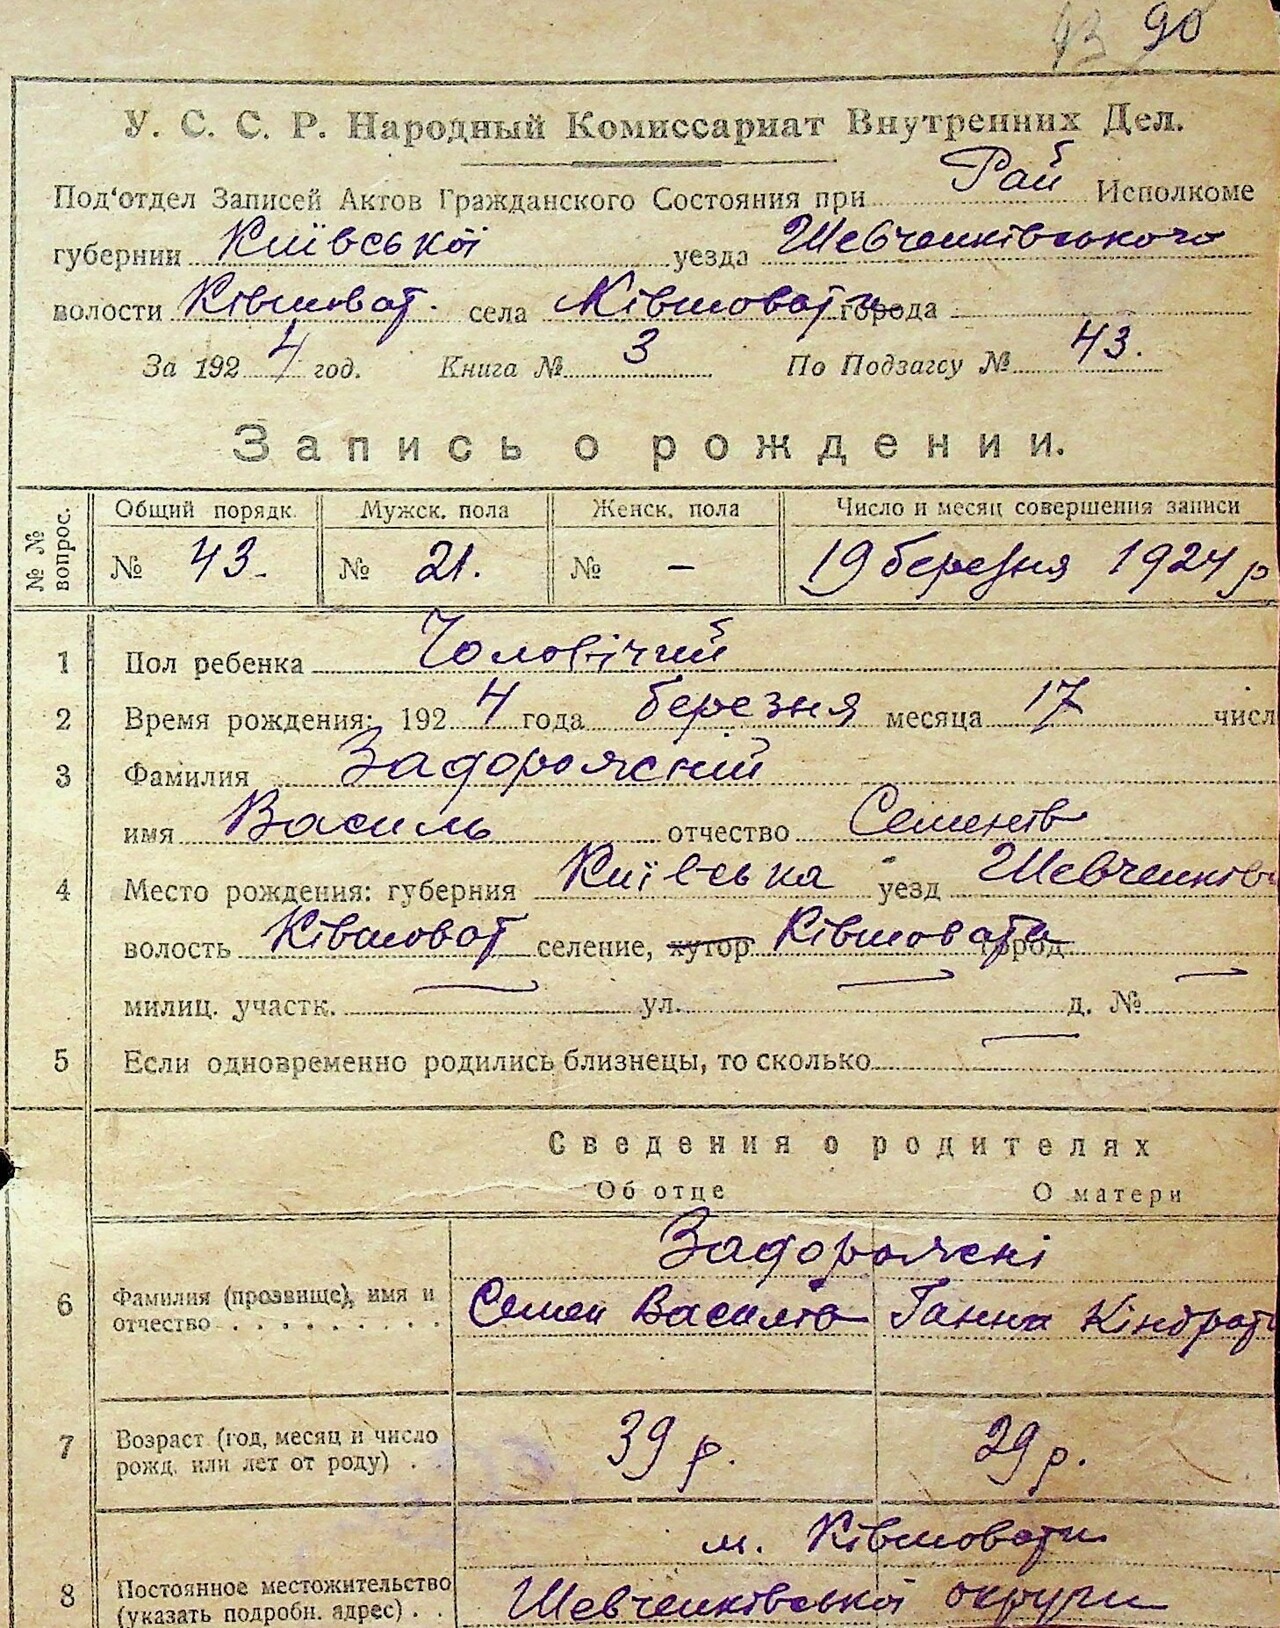 43 90
У. С. С. Р. Народный Комиссариат Внутренних Дел.
Под‘отдел Записей Актов Гражданского Состояния при Рай Исполкоме
губернии Київської уезда Шевченківського
волости Ківшоват. села Ківшовати города
За 1924 год. Книга № 3 По Подзагсу № 43.
Запись о рождении.
№ № вопрос. Общий порядк. Мужск. пола Женск. пола Число и месяц совершения записи
№ 43. № 21. № – 19 березня 1924 р
1 Пол ребенка Чоловічий
2 Время рождения: 1924 года березня месяца 17 числ
3 Фамилия Задорожній
имя Василь отчество Семенів
4 Место рождения: губерния Київська уезд Шевченків
волость Ківшоват селение, хутор Ківшовати город
милиц. участк. — ул. — д. № —
5 Если одновременно родились близнецы, то сколько —
Сведения о родителях
Об отце О матери
Задорожні
6 Фамилия (прозвище), имя и отчество Семен Василів Ганна Кіндрат
7 Возраст (год, месяц и число рожд. или лет от роду) 39 р. 29 р.
м. Ківшовати
8 Постоянное местожительство (указать подробн. адрес) Шевченківської округи